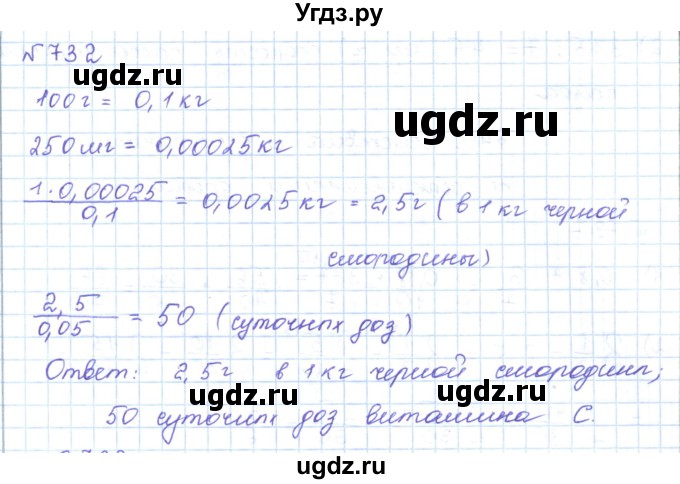 Угдз.ру
№732
ugdz.ru
100г = 0,1 кг
ugdz.ru
250 мг = 0,00025 кг
1·0,00025 / 0,1 = 0,0025 кг = 2,5 г ( в 1 кг черной
ugdz.ru
смородины)
2,5 / 0,05 = 50 (суточных доз)
ugdz.ru
Ответ: 2,5г в 1 кг черной смородины;
ugdz.ru
50 суточных доз витамина С.
ugdz.ru